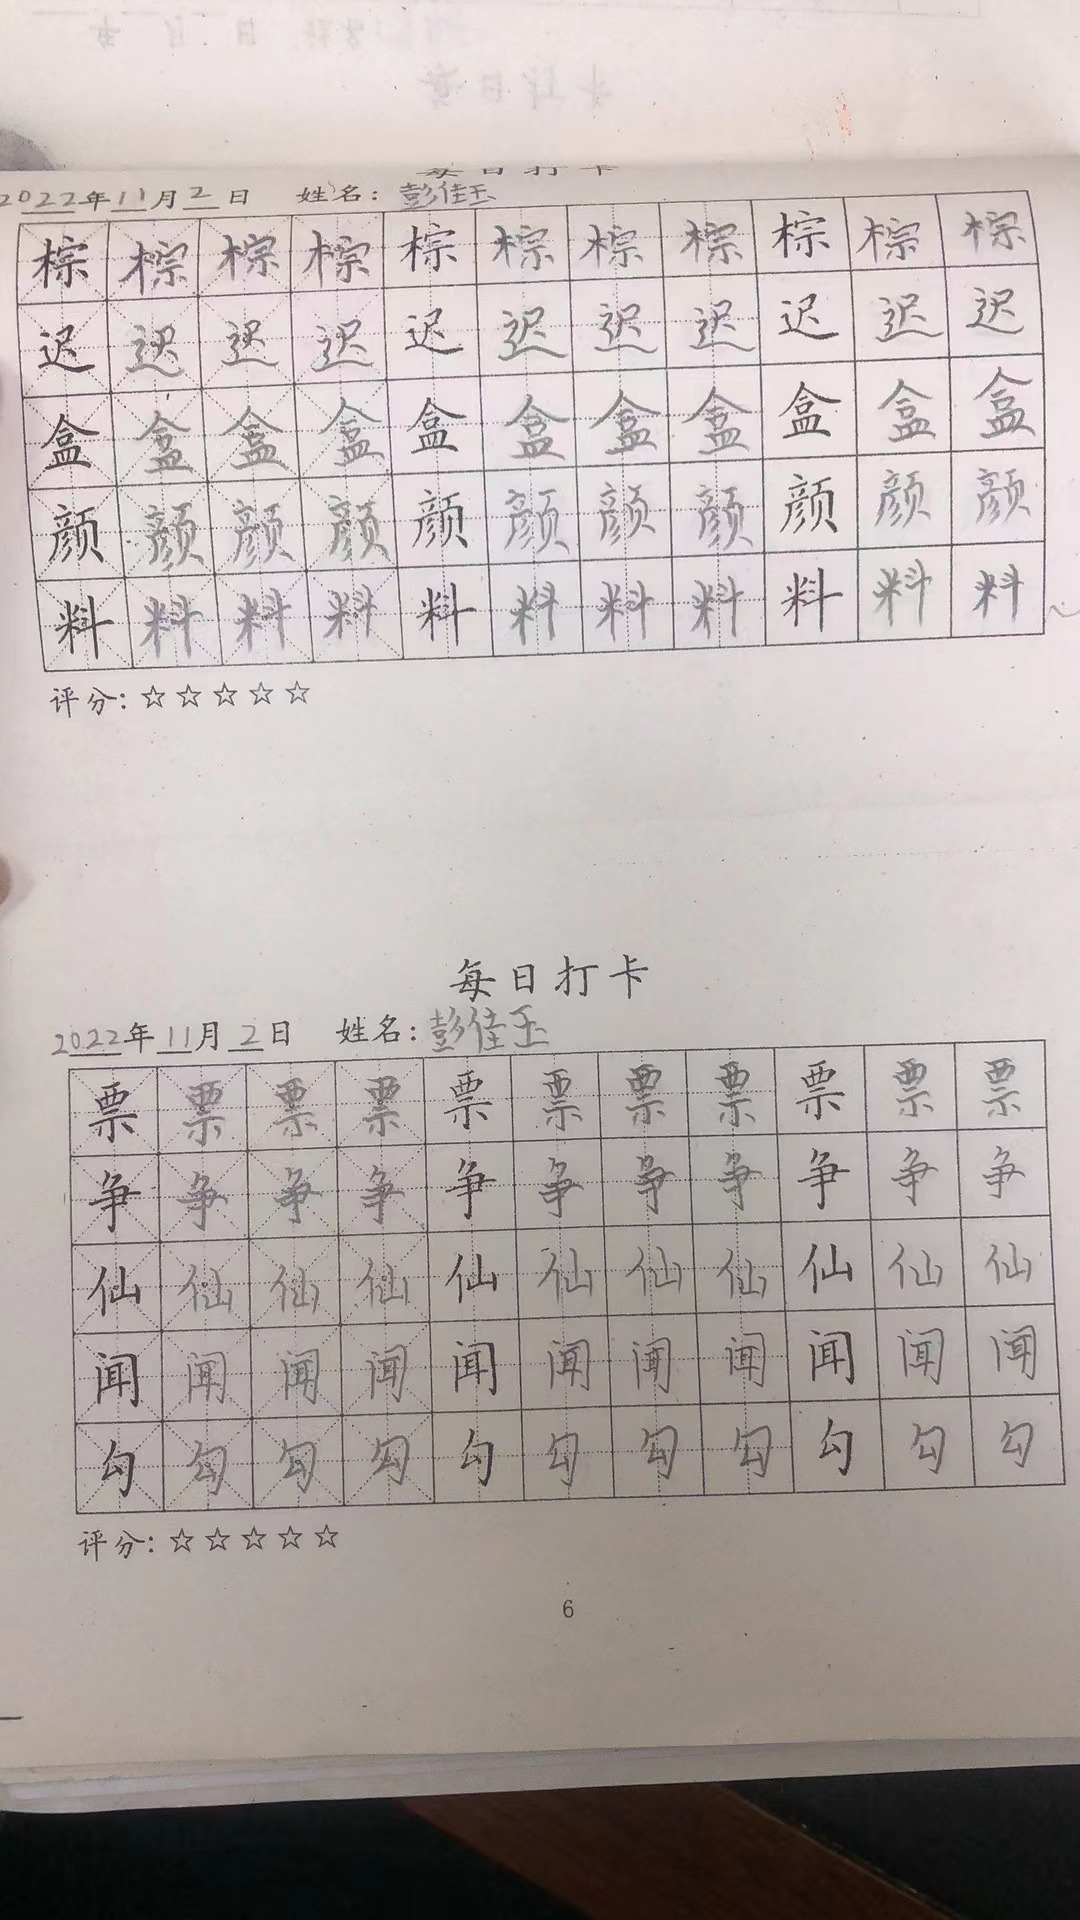 每日打卡
2022年11月2日 姓名：彭佳玉
棕棕棕棕棕棕棕棕棕棕棕
迟迟迟迟迟迟迟迟迟迟迟
盒盒盒盒盒盒盒盒盒盒盒
颜颜颜颜颜颜颜颜颜颜颜
料料料料料料料料料料料
评分：☆☆☆☆☆
每日打卡
2022年11月2日 姓名：彭佳玉
票票票票票票票票票票票
争争争争争争争争争争争
仙仙仙仙仙仙仙仙仙仙仙
闻闻闻闻闻闻闻闻闻闻闻
勾勾勾勾勾勾勾勾勾勾勾
评分：☆☆☆☆☆
6